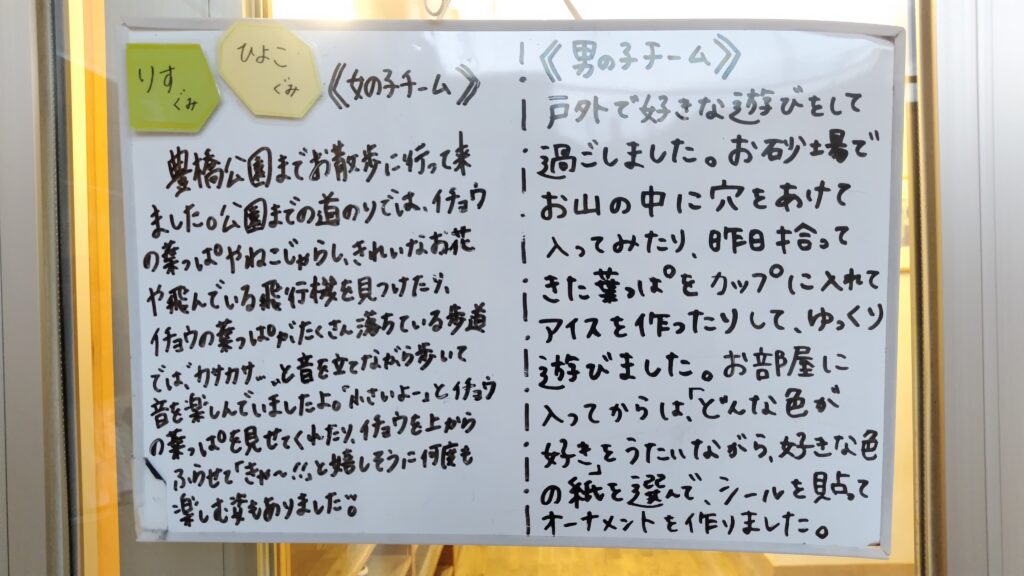 りす
ぐみ
ひよこ
ぐみ
《女の子チーム》
豊橋公園までお散歩に行って来
ました。公園までの道のりでは、イチョウ
の葉っぱやねこじゃらし、きれいなお花
や飛んでいる飛行機を見つけたり、
イチョウの葉っぱがたくさん落ちている歩道
では、カサカサ…。と音を立てながら歩いて
音を楽しんでいましたよ。「小さいよー」とイチョウ
の葉っぱを見せてくれたり、イチョウを上から
ふらせて「きゃ〜!!」と嬉しそうに何度も
楽しむ姿もありました。
《男の子チーム》
戸外で好きな遊びをして
過ごしました。お砂場で
お山の中に穴をあけて
入ってみたり、昨日拾って
きた葉っぱをカップに入れて
アイスを作ったりして、ゆっくり
遊びました。お部屋に
入ってからは、「どんな色が
好き」をうたいながら、好きな色
の紙を選んで、シールを貼って
オーナメントを作りました。